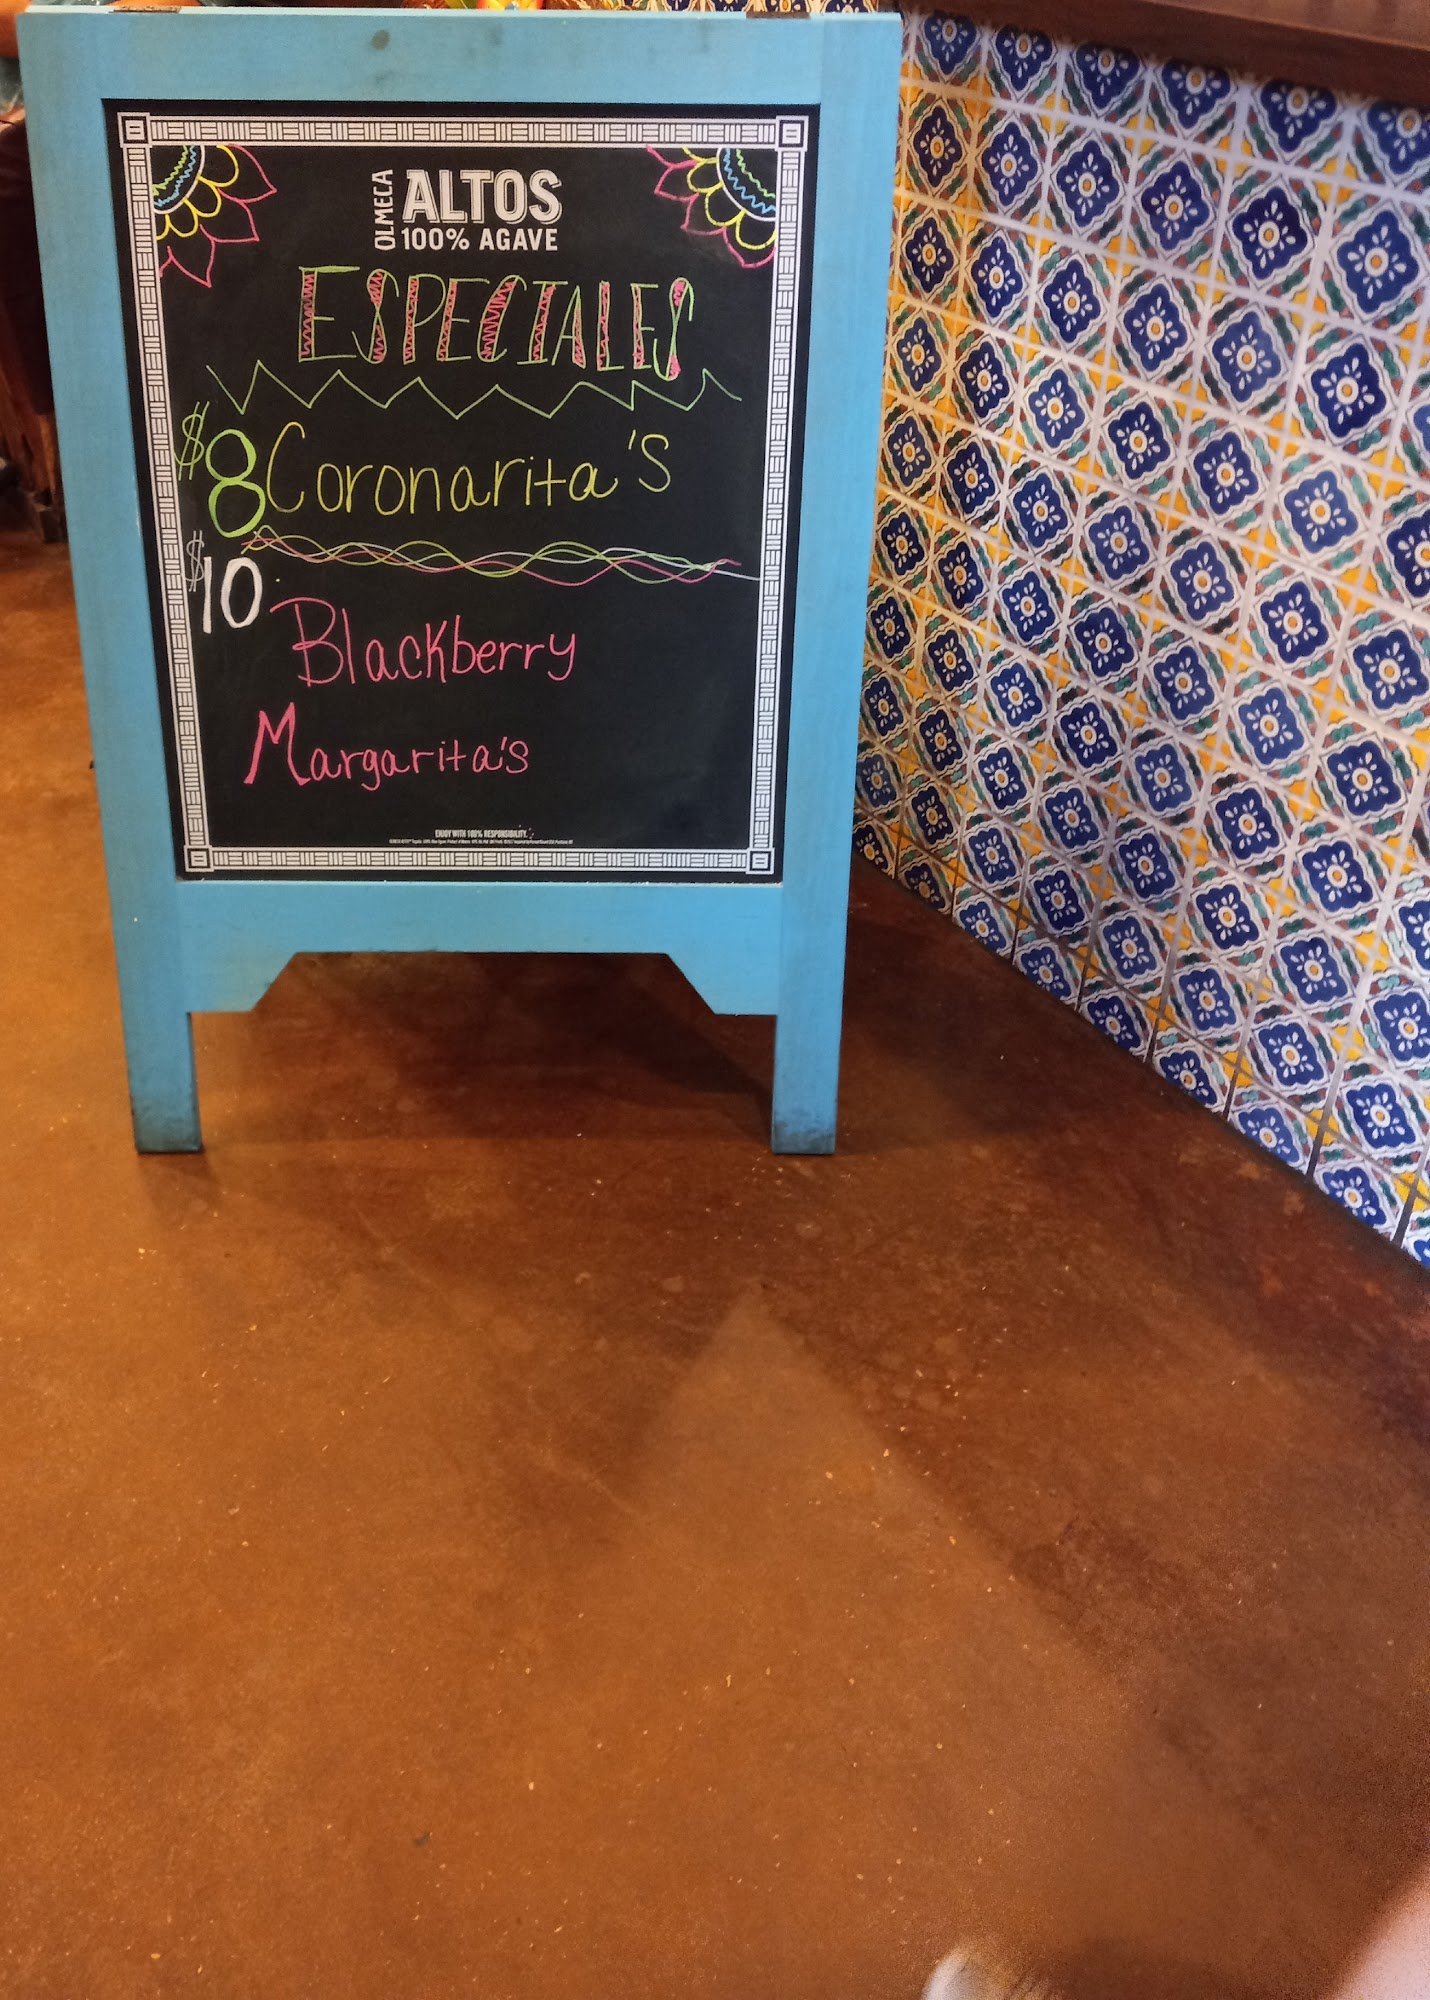 OLMECA ALTOS
100% AGAVE
ESPECIALES
$8 Coronarita's
$10 Blackberry
Margarita's
ENJOY WITH 100% RESPONSIBILITY.